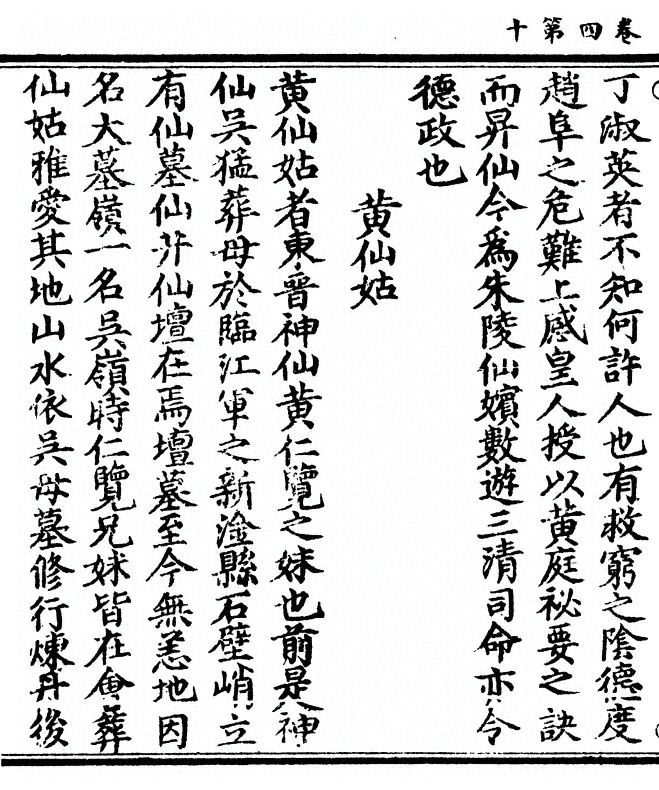 卷四第十
丁淑英者不知何許人也有救窮之陰德度
趙阜之危難上感皇人授以黄庭祕要之訣
而昇仙今爲朱陵仙嬪數遊三清司命亦令
德政也
黄仙姑
黄仙姑者東晉神仙黄仁覽之妹也前是神
仙吳猛葬母於臨江軍之新淦縣石壁峭立
有仙墓仙井仙壇在焉壇墓至今無恙地因
名大墓嶺一名吳嶺時仁覽兄妹皆在會葬
仙姑雅愛其地山水依吳母墓修行煉丹後